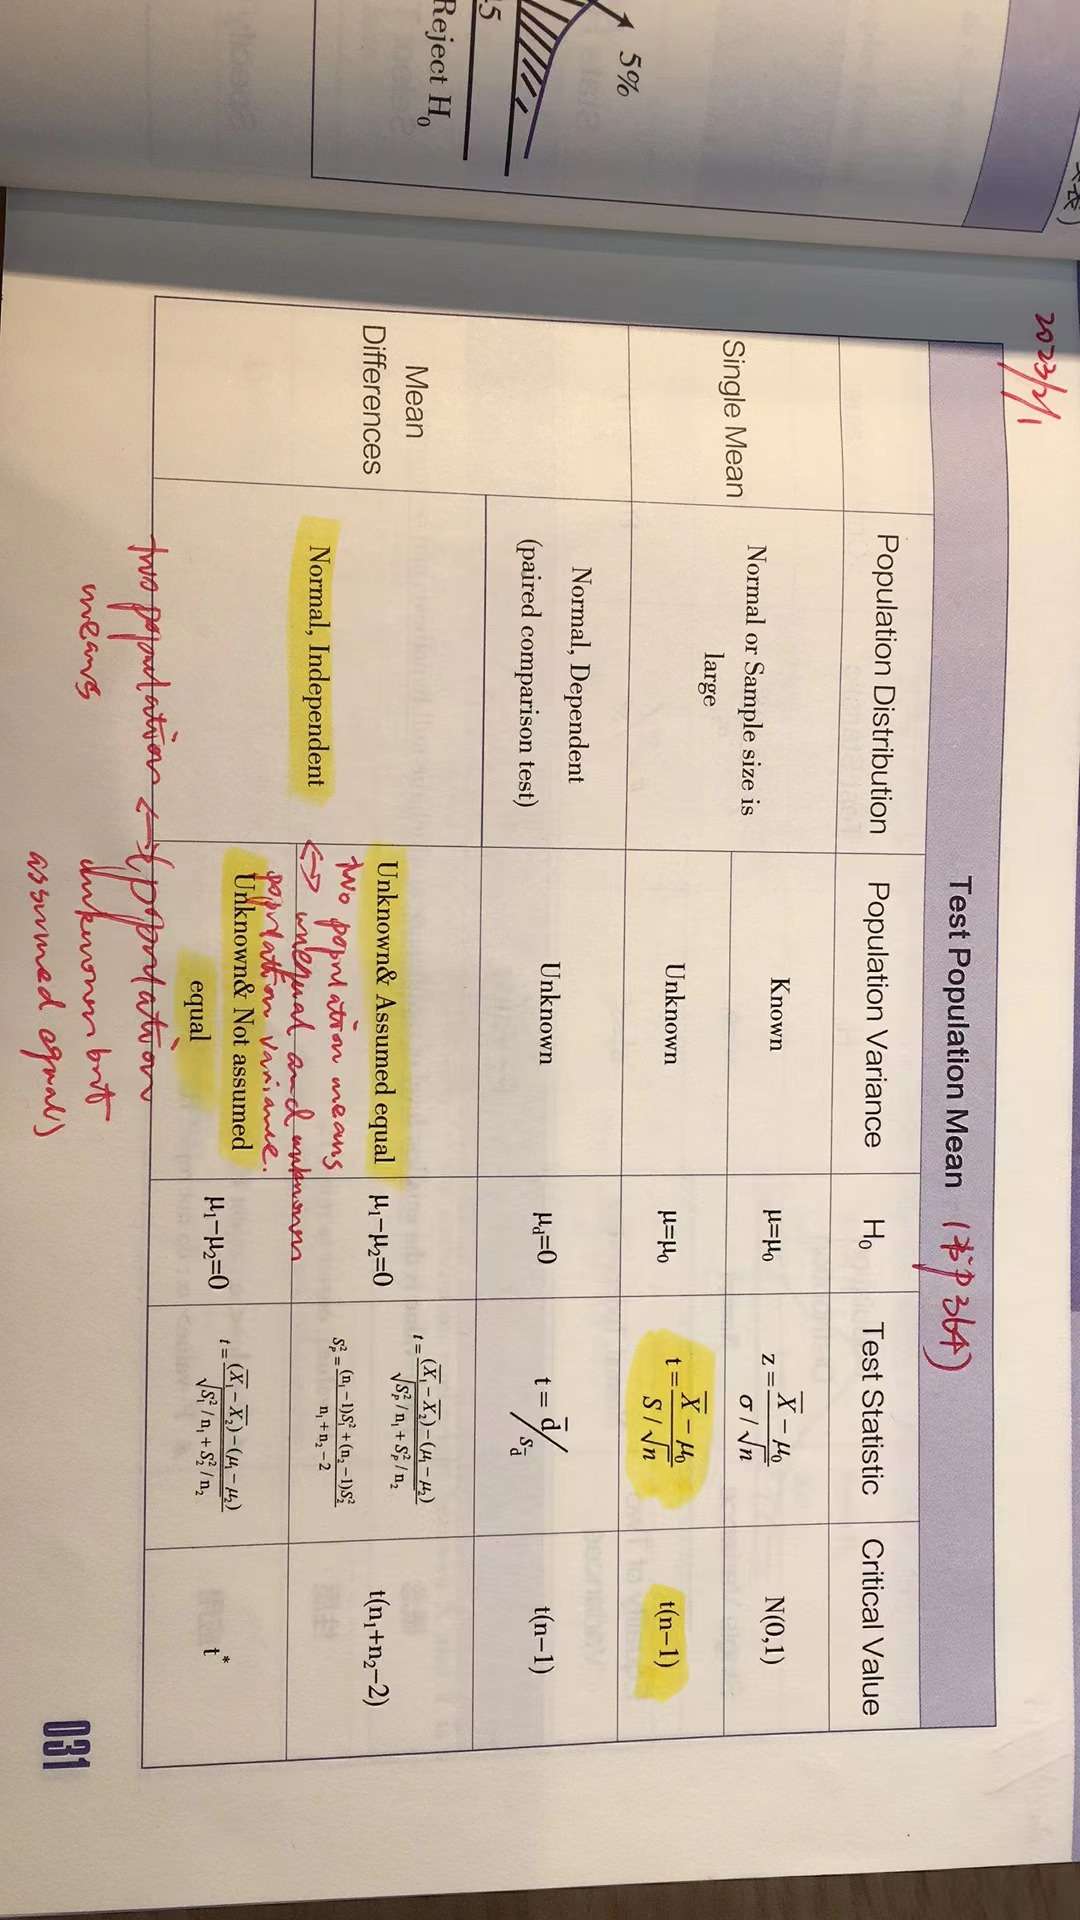 5%
5
Reject H₀
2023/2/1
Test Population Mean (书P364)
Population Distribution
Population Variance
H₀
Test Statistic
Critical Value
Single Mean
Normal or Sample size is
large
Known
μ=μ₀
z = (X̅ − μ₀) / (σ / √n)
N(0,1)
Unknown
μ=μ₀
t = (X̅ − μ₀) / (S / √n)
t(n−1)
Mean
Differences
Normal, Dependent
(paired comparison test)
Unknown
μd=0
t = d̄ / s_d̄
t(n−1)
Normal, Independent
Unknown& Assumed equal
μ₁−μ₂=0
t = ((X̅₁ − X̅₂) − (μ₁ − μ₂)) / √(Sp² / n₁ + Sp² / n₂)
Sp² = ((n₁ −1)S₁² + (n₂ −1)S₂²) / (n₁ + n₂ −2)
t(n₁+n₂−2)
two population means
↔ unequal and unknown
population variance.
Unknown& Not assumed
equal
μ₁−μ₂=0
t = ((X̅₁ − X̅₂) − (μ₁ − μ₂)) / √(S₁² / n₁ + S₂² / n₂)
t*
two population ↔ (population
means unknown but
assumed equal)
031